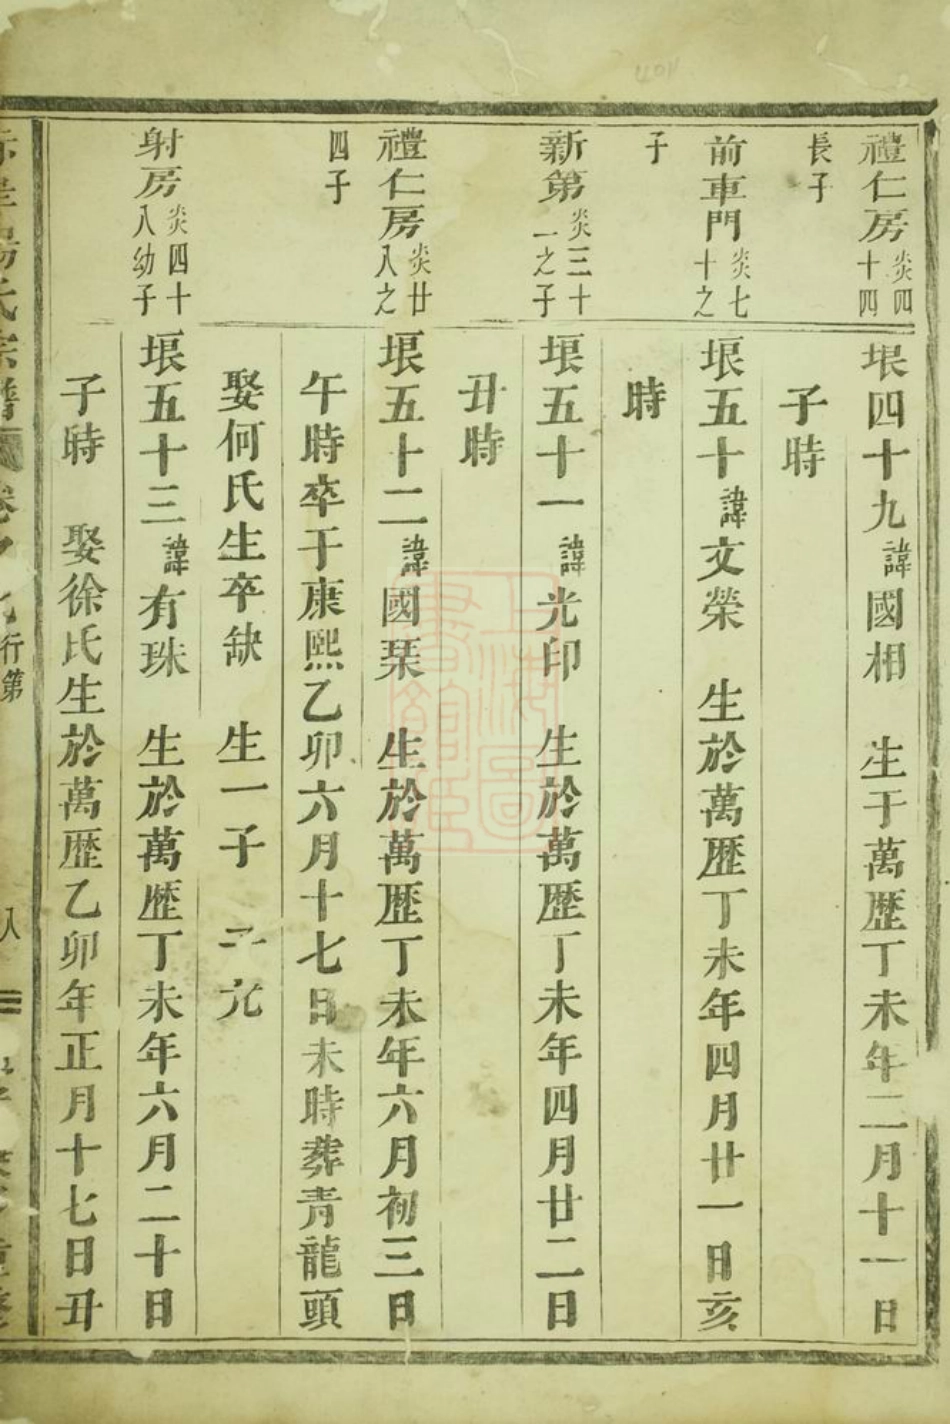 禮仁房炎四十四
長子
垠四十九諱國相 生于萬歷丁未年二月十一日
子時
前車門炎七十之
子
垠五十諱文榮 生於萬歷丁未年四月廿一日亥
時
新第炎三十一之子
垠五十一諱光印 生於萬歷丁未年四月廿二日
丑時
禮仁房炎廿八之
四子
垠五十二諱國琹 生於萬歷丁未年六月初三日
午時卒于康熙乙卯六月十七日未時葬青龍頭
娶何氏生卒缺 生一子 子允
射房炎四十八幼子
垠五十三諱有珠 生於萬歷丁未年六月二十日
子時 娶徐氏生於萬歷乙卯年正月十七日丑
氏宗譜 卷
行第
八